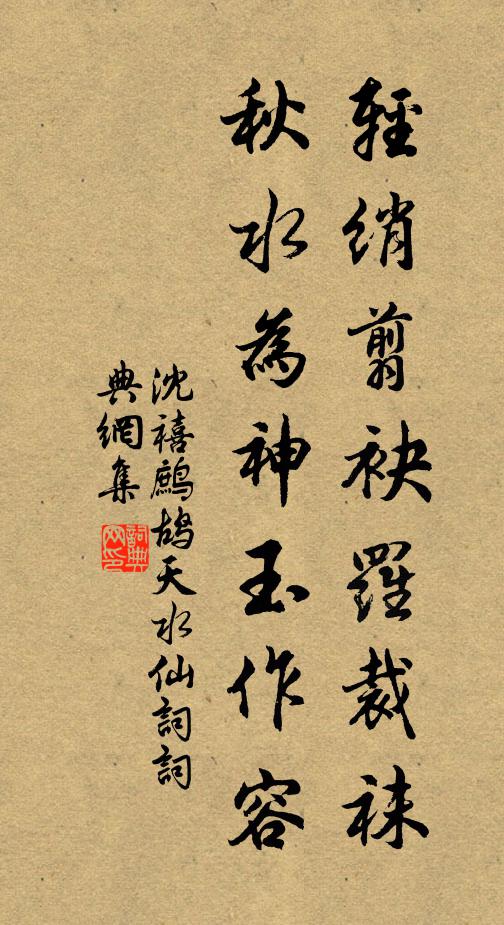 輕綃翦袂羅裁袜
秋水為神玉作容
沈禧鷓鴣天水仙詞詞
典網集
詞典網印